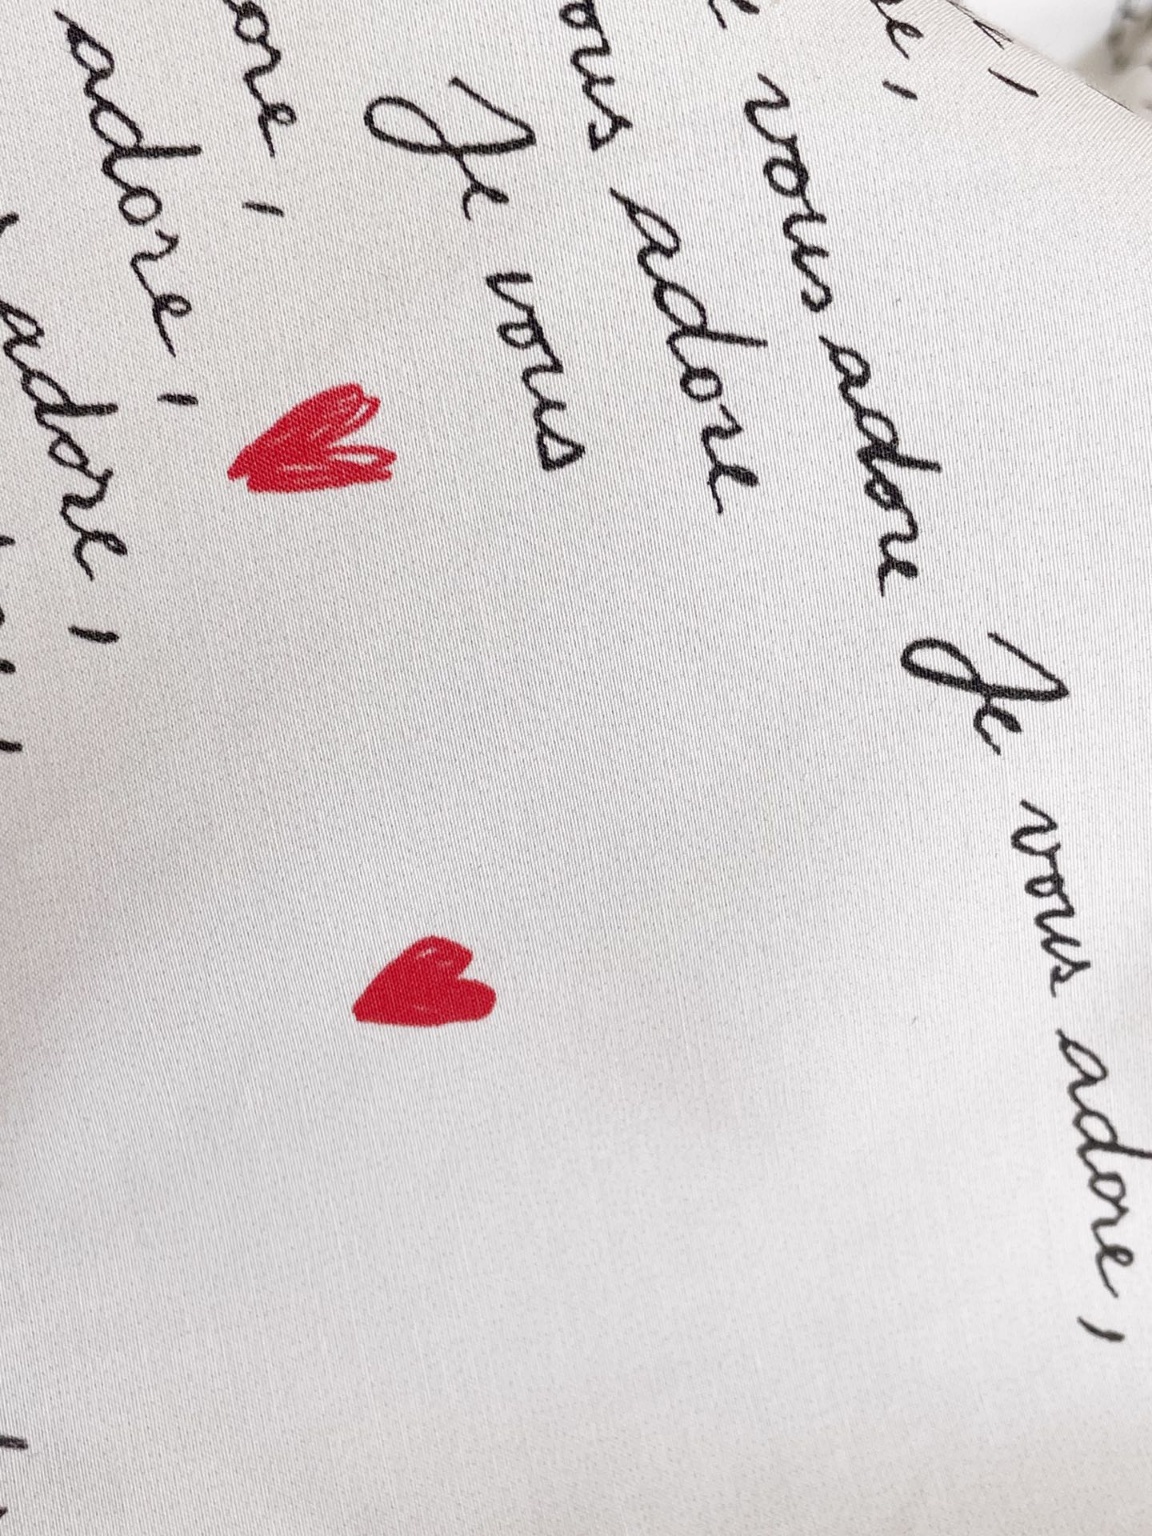 e,
vous adore Je vous adore,
ous adore
Je vous
ore,
adore,
adore,